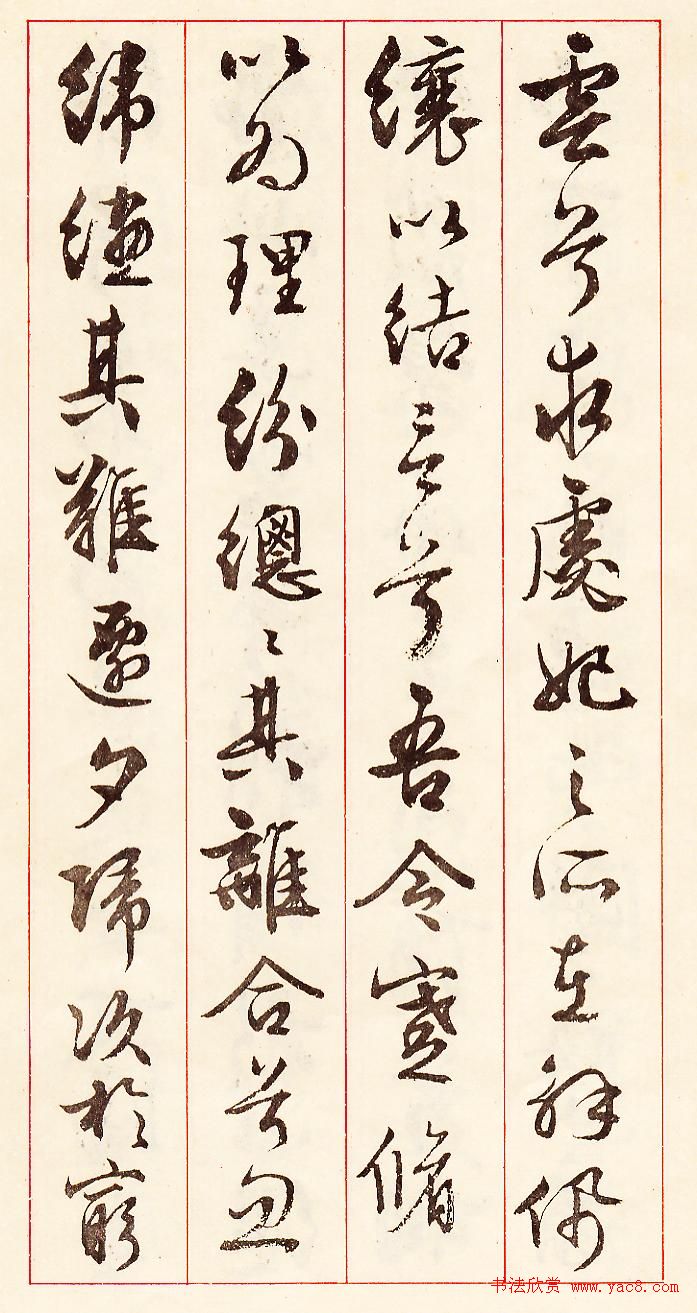 雲兮求虙妃之所在解佩
纕以結言兮吾令蹇脩
以為理紛總〻其離合兮忽
緯繣其難遷夕歸次於窮
书法欣赏 www.yac8.com